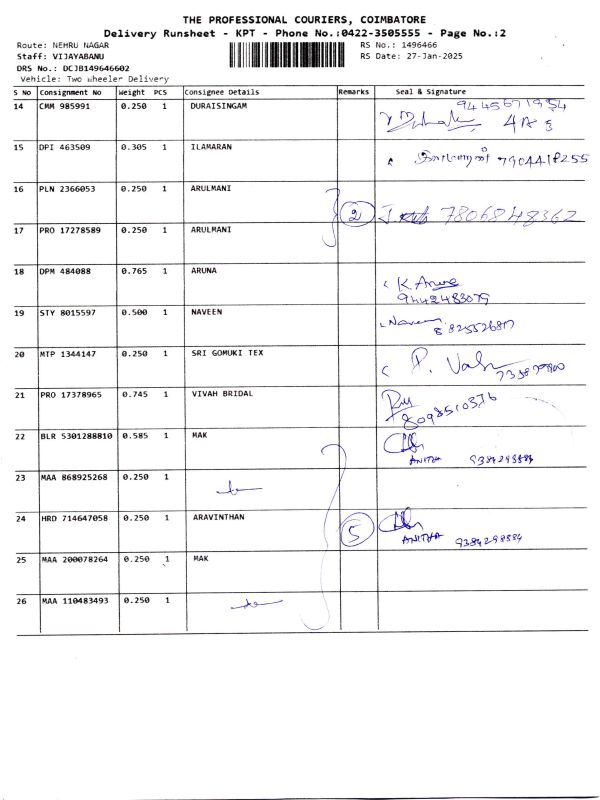 THE PROFESSIONAL COURIERS, COIMBATORE
Delivery Runsheet - KPT - Phone No.:0422-3505555 - Page No.:2
Route: NEHRU NAGAR RS No.: 1496466
Staff: VIJAYABANU RS Date: 27-Jan-2025
DRS No.: DCJB149646602
Vehicle: Two Wheeler Delivery
S No Consignment No Weight PCS Consignee Details Remarks Seal & Signature
14 CMM 985991 0.250 1 DURAISINGAM 9445671954
15 DPI 463509 0.305 1 ILAMARAN 7904418255
16 PLN 2366053 0.250 1 ARULMANI
2 7806848362
17 PRO 17278589 0.250 1 ARULMANI
18 DPM 484088 0.765 1 ARUNA K. Aruna
9442483079
19 STY 8015597 0.500 1 NAVEEN Naveen
20 MTP 1344147 0.250 1 SRI GOMUKI TEX
21 PRO 17378965 0.745 1 VIVAH BRIDAL
8098510376
22 BLR 5301288810 0.585 1 MAK
ANITHA 9384298884
23 MAA 868925268 0.250 1
24 HRD 714647058 0.250 1 ARAVINTHAN
5 ANITHA 9384298884
25 MAA 200078264 0.250 1 MAK
26 MAA 110483493 0.250 1